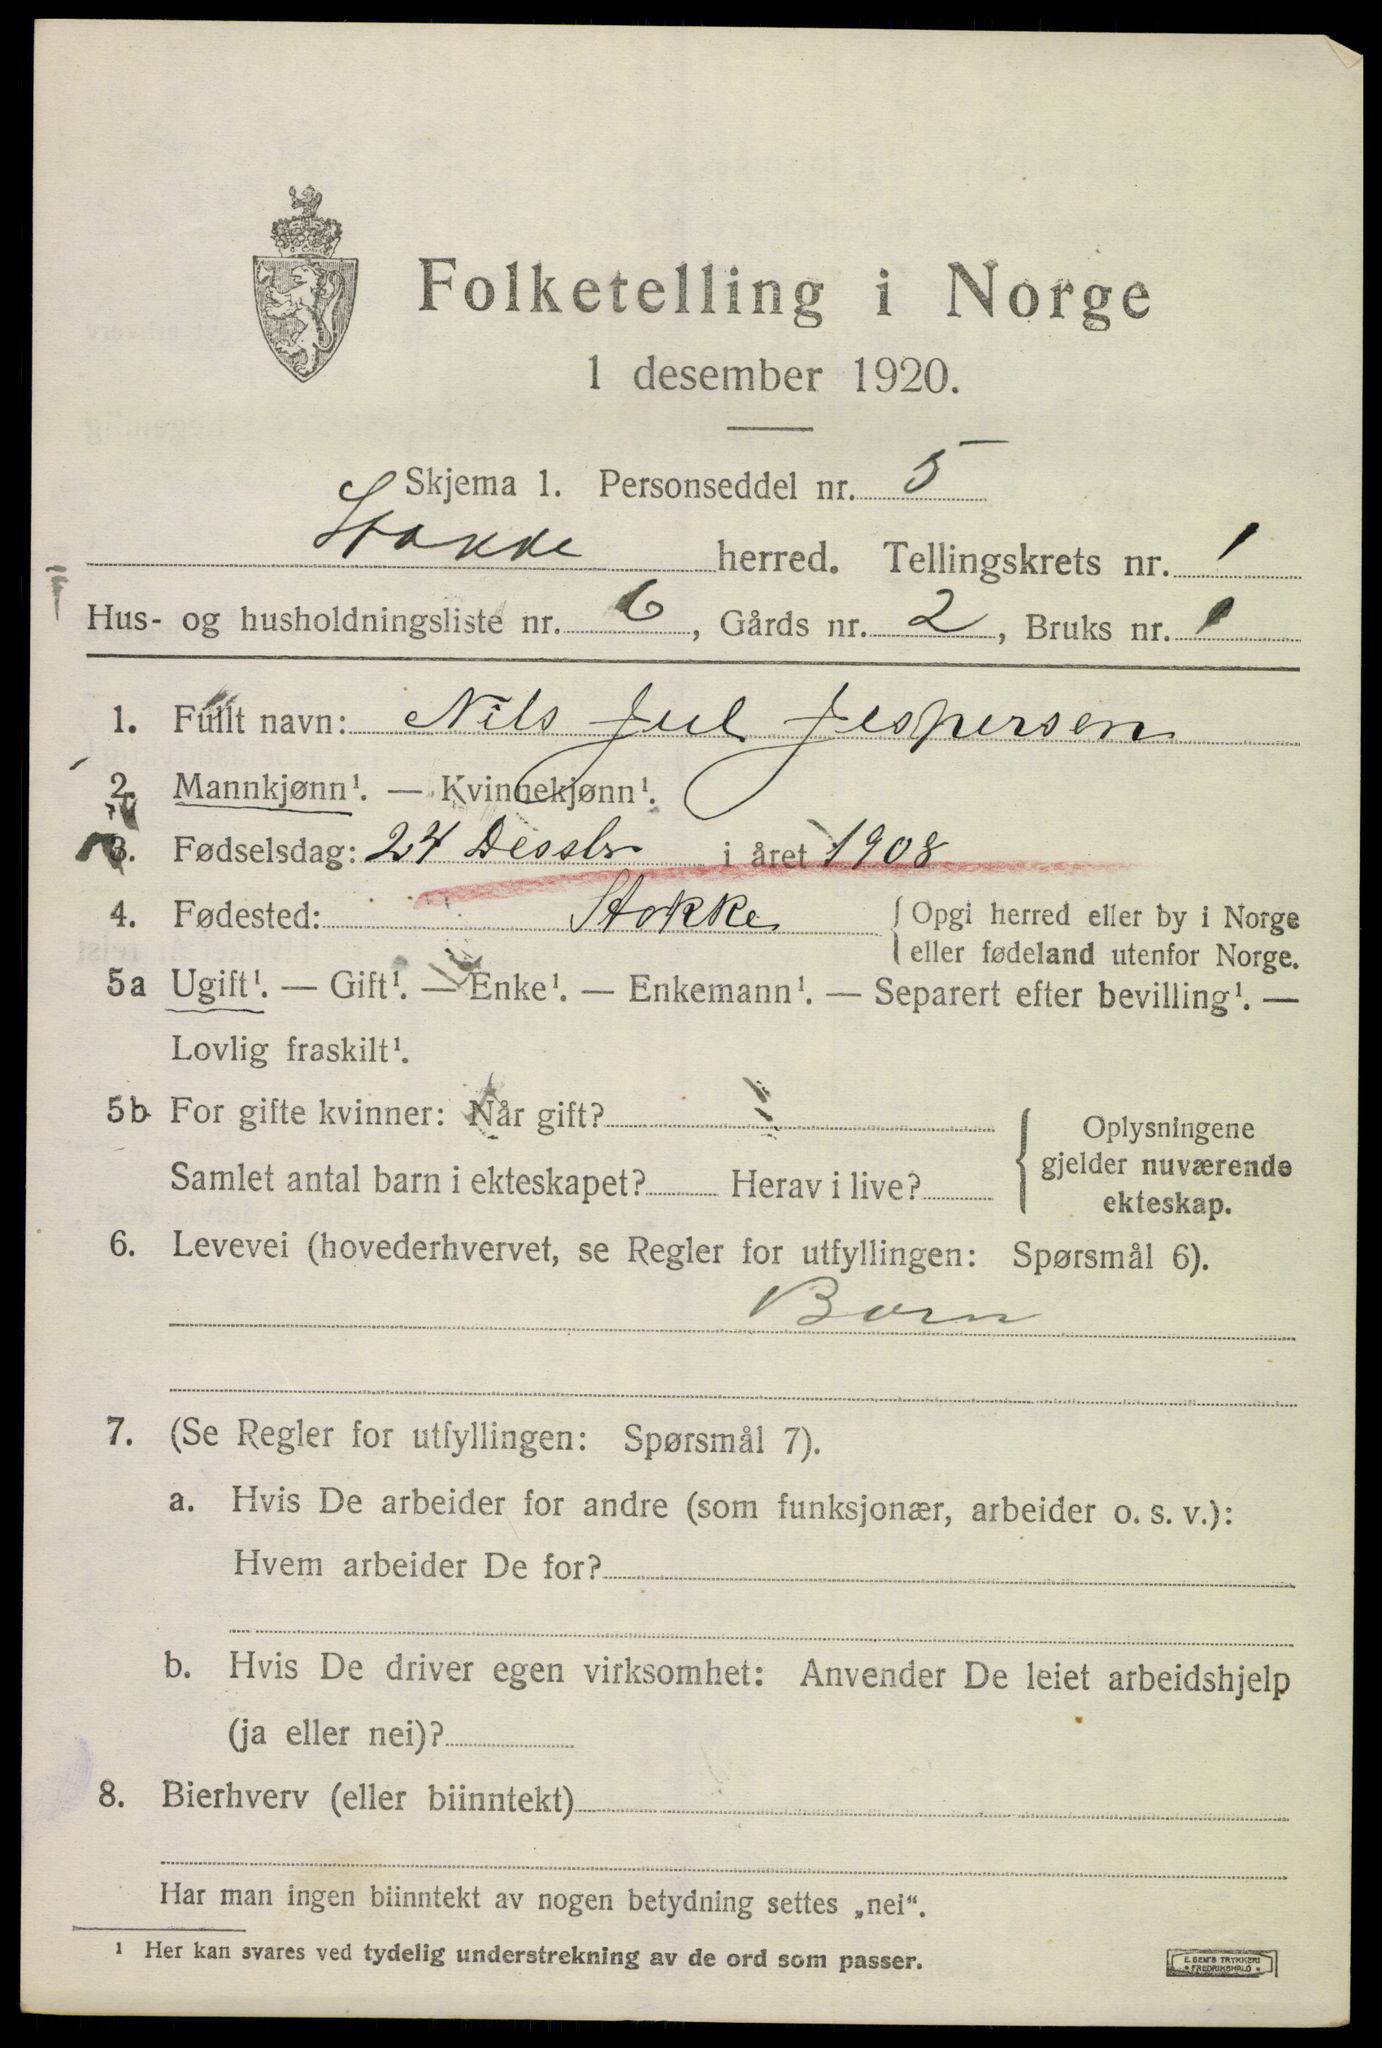 Folketelling i Norge
1 desember 1920.
Skjema 1. Personseddel nr. 5
Stokke herred. Tellingskrets nr. 1
Hus- og husholdningsliste nr. 6, Gårds nr. 2, Bruks nr. 1
1. Fullt navn: Nils Jul Jespersen
2. Mannkjønn¹. — Kvinnekjønn¹.
3. Fødselsdag: 24 Dessbr i året 1908
4. Fødested: Stokke { Opgi herred eller by i Norge
eller fødeland utenfor Norge.
5a Ugift¹. — Gift¹. — Enke¹. — Enkemann¹. — Separert efter bevilling¹. —
Lovlig fraskilt¹.
5b For gifte kvinner: Når gift?
Samlet antal barn i ekteskapet? Herav i live?
{ Oplysningene
gjelder nuværende
ekteskap.
6. Levevei (hovederhvervet, se Regler for utfyllingen: Spørsmål 6).
Barn
7. (Se Regler for utfyllingen: Spørsmål 7).
a. Hvis De arbeider for andre (som funksjonær, arbeider o. s. v.):
Hvem arbeider De for?
b. Hvis De driver egen virksomhet: Anvender De leiet arbeidshjelp
(ja eller nei)?
8. Bierhverv (eller biinntekt)
Har man ingen biinntekt av nogen betydning settes „nei“.
¹ Her kan svares ved tydelig understrekning av de ord som passer.
E. SEM'S TRYKKERI
FREDRIKSHALD